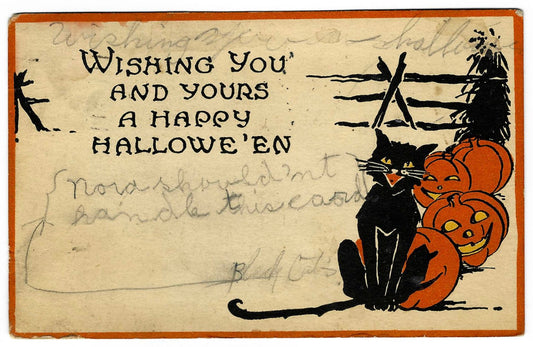 Wishing you a hallow
WISHING YOU
AND YOURS
A HAPPY
HALLOWE'EN
Nora should'nt
handle this card
Black Cats